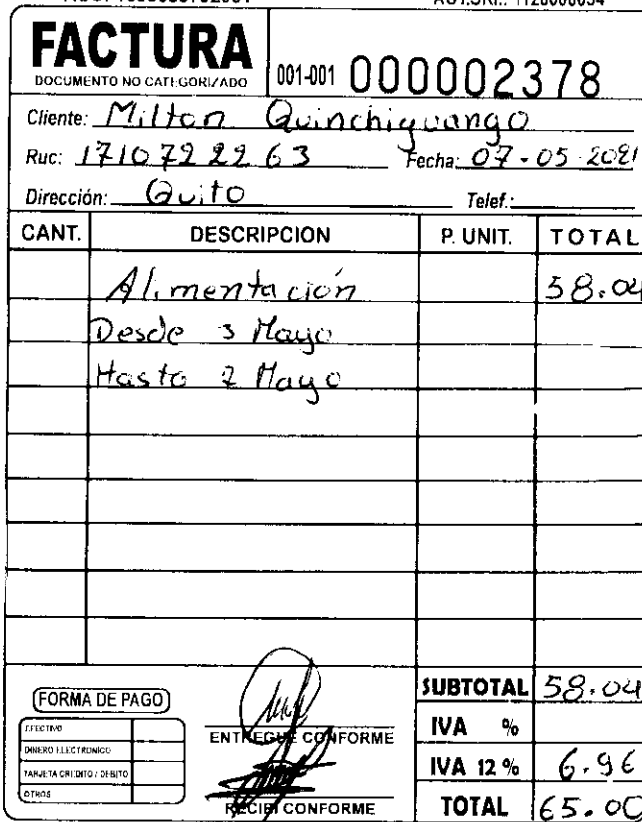 FACTURA
DOCUMENTO NO CATEGORIZADO
001-001 000002378
Cliente: Milton Quinchiguango
Ruc: 1710722263 Fecha: 07-05-2021
Dirección: Quito Telef.:
CANT. DESCRIPCION P. UNIT. TOTAL
Alimentación 58.04
Desde 3 Mayo
Hasta 7 Mayo
FORMA DE PAGO
EFECTIVO
DINERO ELECTRONICO
TARJETA CREDITO / DEBITO
OTROS
ENTREGUE CONFORME
RECIBI CONFORME
SUBTOTAL 58.04
IVA %
IVA 12 % 6.96
TOTAL 65.00